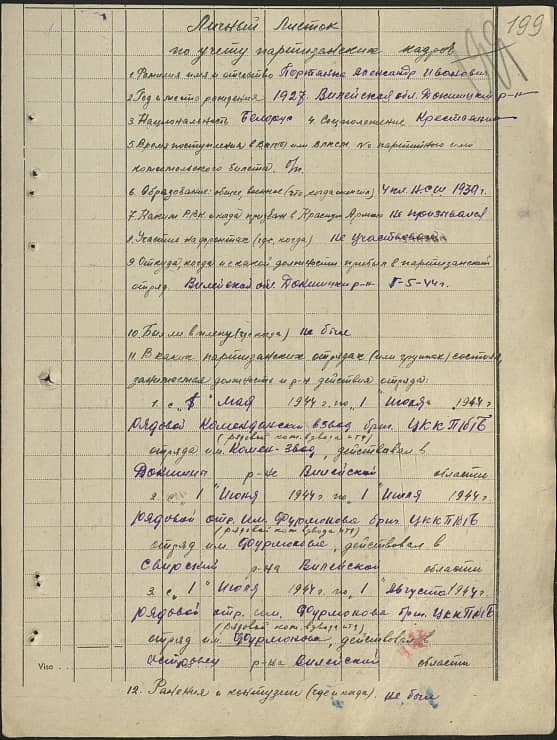 199
Личный Листок
по учету партизанских кадров
1. Фамилия имя и отчество Александр Иванович
2. Год и место рождения 1927. Вилейская обл. Докшицки р-н
3. Национальность Белорус 4. Соцположение Крестьянин
5. Время поступления в ВКП(б) или ВЛКСМ № партийного или
комсомольского билета. б/п.
6. Образование: общее, военное (что, когда окончил) 4 кл. Н.С.Ш 1939 г.
7. Каким РВК и когда призван в Красную Армию не призывался
8. Участие на фронтах (где, когда) не участвовал
9. Откуда, когда и с какой должности прибыл в партизанский
отряд. Вилейской обл. Докшицки р-н -5-44 г.
10. Был ли в плену (где, когда) не был
11. В каких партизанских отрядах (или группах) состоял,
занимаемая должность и р-н действия отряда:
1. с " " Май 1944 г. по " 1 " Июня 1944 г.
рядовой Комендански взвод бриг. ЦККП/б/Б
(рядовой, ком. взвода итд)
отряда им. Комен-взвод, действовал в
Докшицки р-не Вилейской области
2. с " 1 " Июня 1944 г. по " 1 " Июля 1944 г.
рядовой отр. им. Фурмонова бриг. ЦККП/б/Б
(рядовой, ком. взвода итд)
отряд им. Фурмонова, действовал в
Свирский р-на Вилейской области
3. с " 1 " Июля 1944 г. по " 1 " Августа 1944 г.
рядовой отр. им. Фурмонова бриг. ЦККП/б/Б
(рядовой, ком. взвода итд)
отряд им. Фурмонова, действовал в
р-на Вилейский области
Viso
12. Ранения и контузии (где и когда). не был